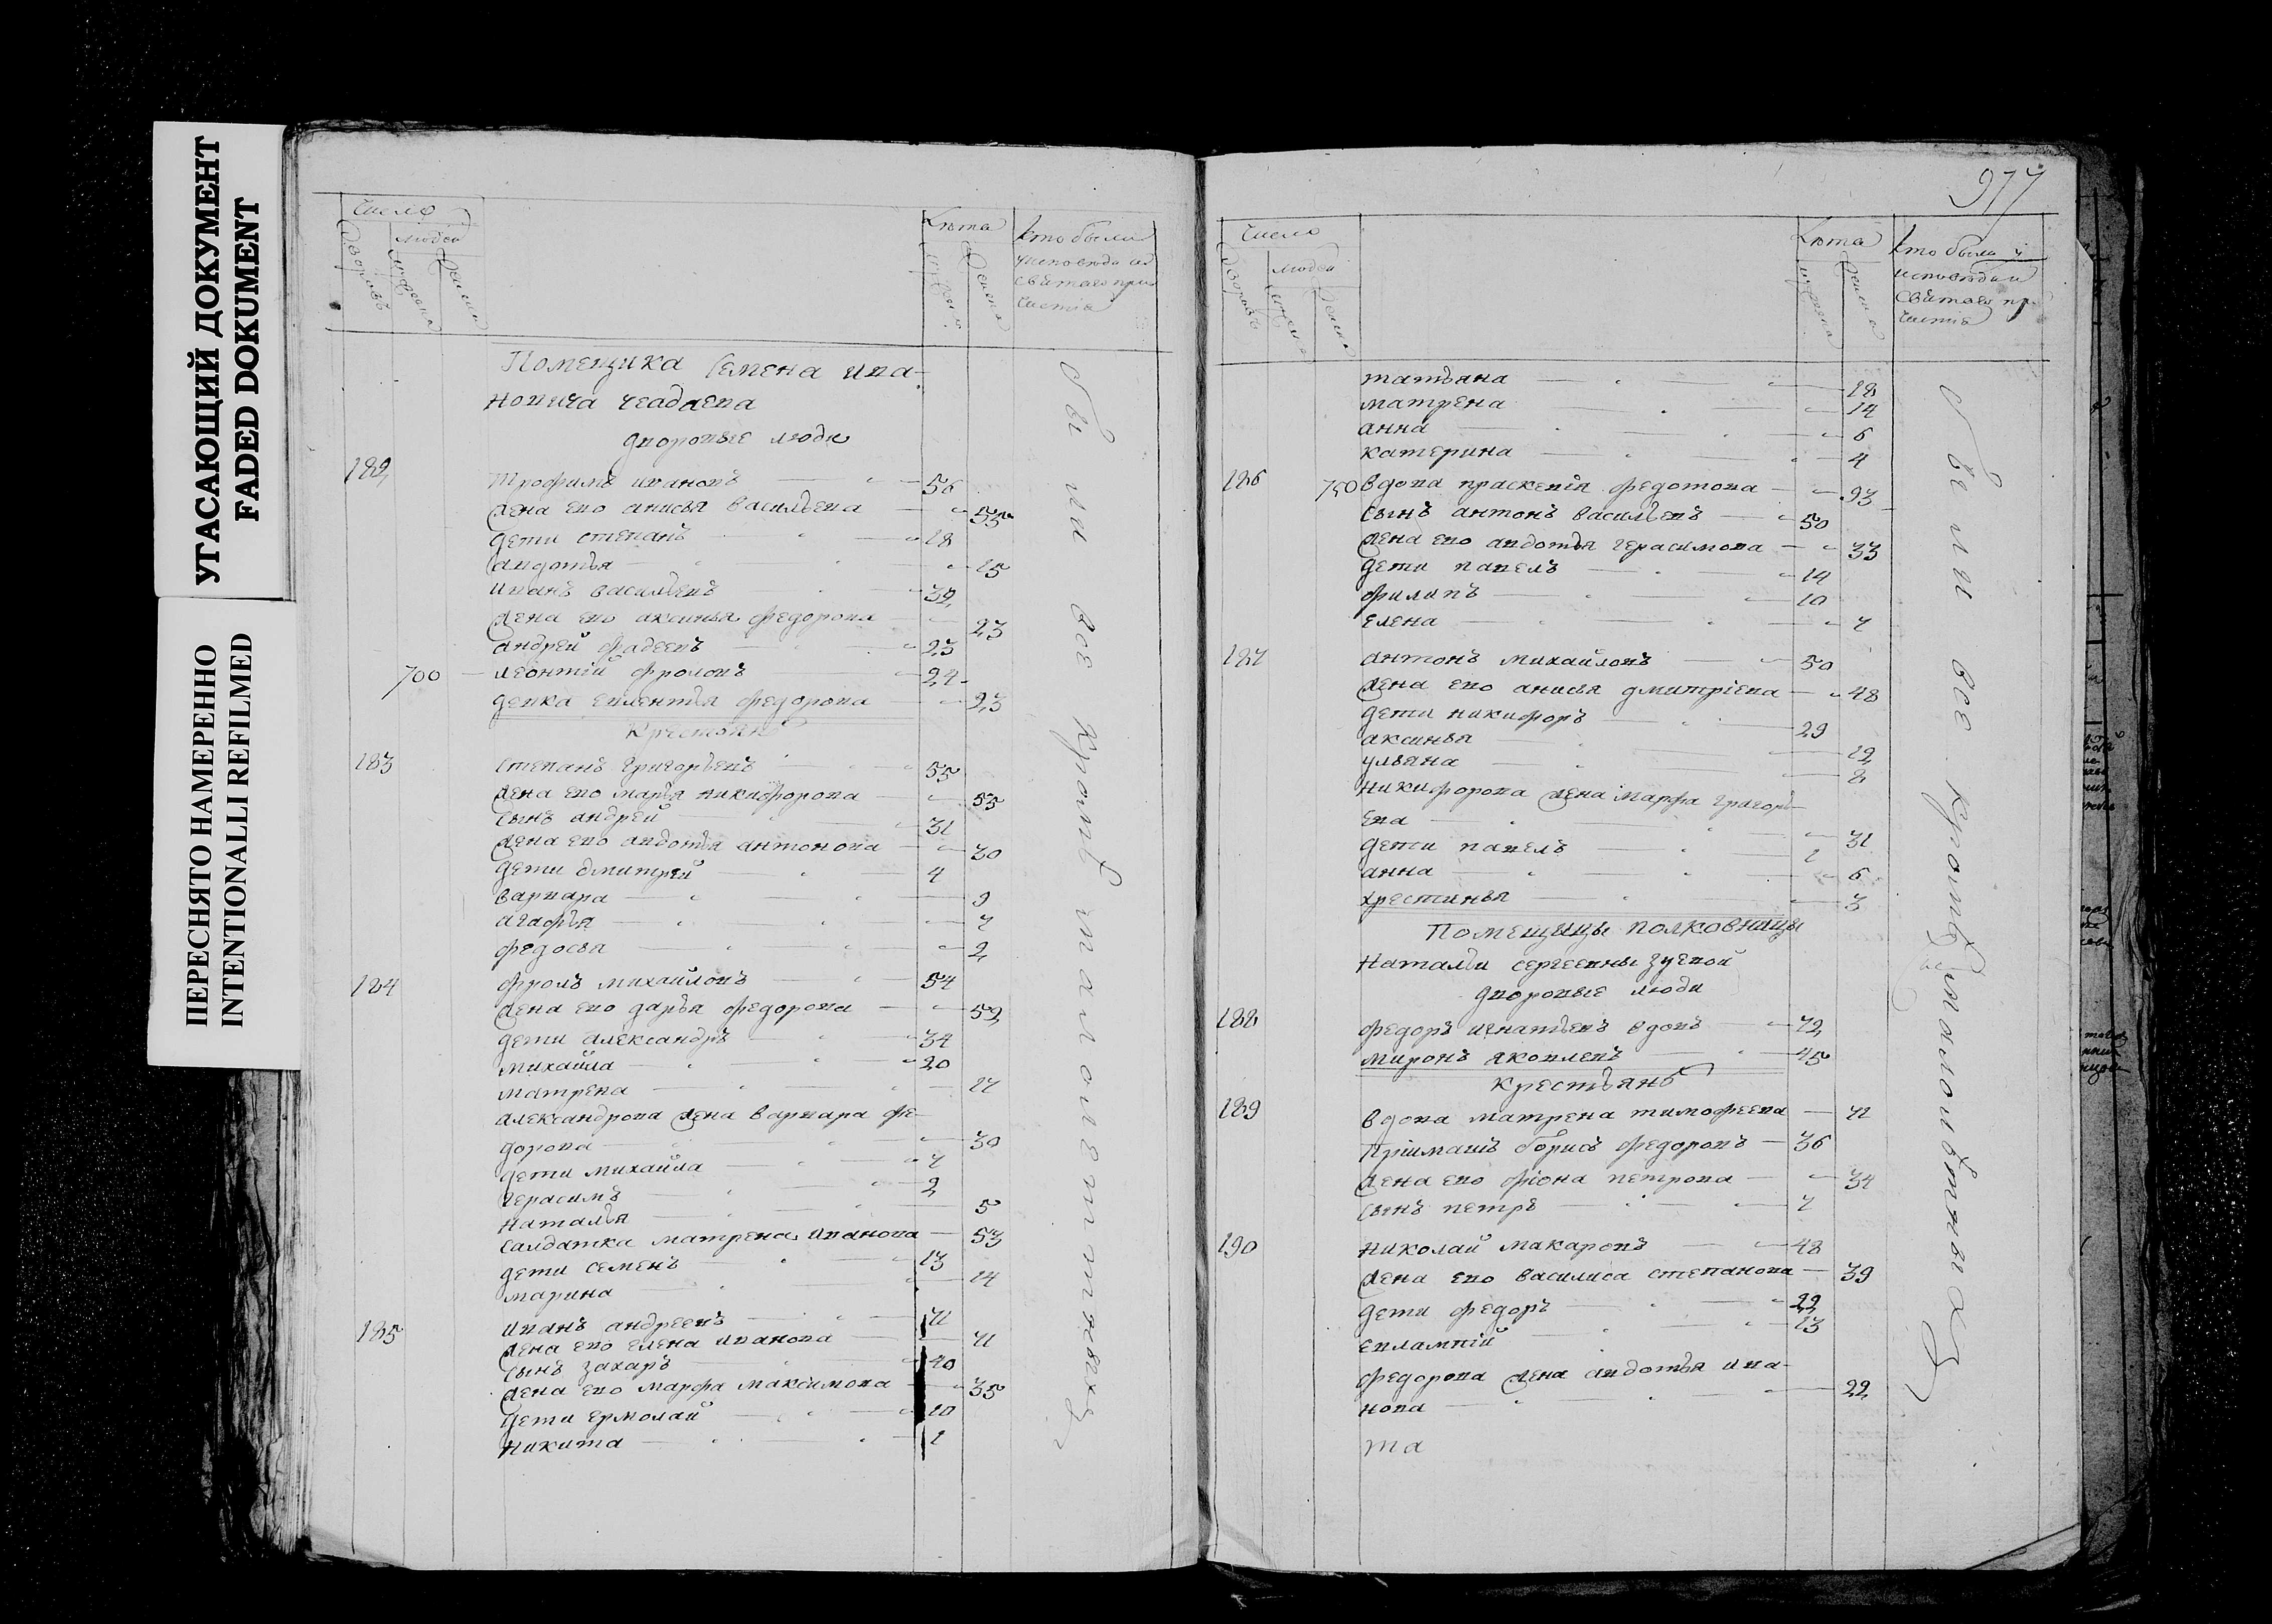 УГАСАЮЩИЙ ДОКУМЕНТ
FADED DOKUMENT
ПЕРЕСНЯТО НАМЕРЕННО
INTENTIONALLI REFILMED
Число
Людей
Дворовъ
мужеска
женска
Лѣта
мужеска
женска
кто были
у исповѣди и
святаго при
частія
Помещика Семена ива-
новича чеадаева
дворовые люди
182 трофимъ ивановъ 56
жена его анисья васильева 55
дети степанъ 18
авдотья 15
иванъ васильевъ 32
жена его аксинья федорова 23
андрей фадеевъ 23
700 леонтий фроловъ 24
девка евлентья федорова 23
Крестьянѣ
183 степанъ григорьевъ 55
жена его марья никифорова 55
сынъ андрей 31
жена его авдотья антонова 30
дети дмитрей 4
варвара 9
агафья 7
федосья 2
184 фролъ михайловъ 54
жена его дарья федорова 52
дети александръ 34
михайла 20
матрена 17
александрова жена варвара фе-
дорова 30
дети михайла 7
герасимъ 2
наталья 5
салдатка матрена иванова 53
дети семенъ 13
марина 14
185 иванъ андреевъ 71
жена его елена иванова 71
сынъ захаръ 40
жена его марфа максимова 35
дети ермолай 10
никита 1
все кроме малолетныхъ
977
Число
Людей
Дворовъ
женска
Лѣта
мужеска
женска
кто были у
исповѣди и
святаго при
частія
татьяна 18
матрена 14
анна 6
катерина 4
186 750 вдова праскевія федотова 93
сынъ антонъ васильевъ 50
жена его авдотья герасимова 33
дети павелъ 14
филипъ 10
елена 7
187 антонъ михайловъ 50
жена его анисья дмитріева 48
дети никифоръ 29
аксинья 12
ульяна 8
никифорова жена марфа григорь-
ева 31
дети павелъ 1
анна 6
хрестинья 3
Помещицы полковницы
Натальи сергеевны зуевой
дворовые люди
188 федоръ игнатьевъ вдовъ 72
миронъ яковлевъ 45
Крестьянѣ
189 вдова матрена тимофеева 71
Пріймашъ борисъ федоровъ 36
жена его фіона петрова 34
сынъ петръ 7
190 николай макаровъ 48
жена его василиса степанова 39
дети федоръ 22
евлампій 13
федорова жена авдотья ива-
нова 22
та
все кроме малолѣтныхъ